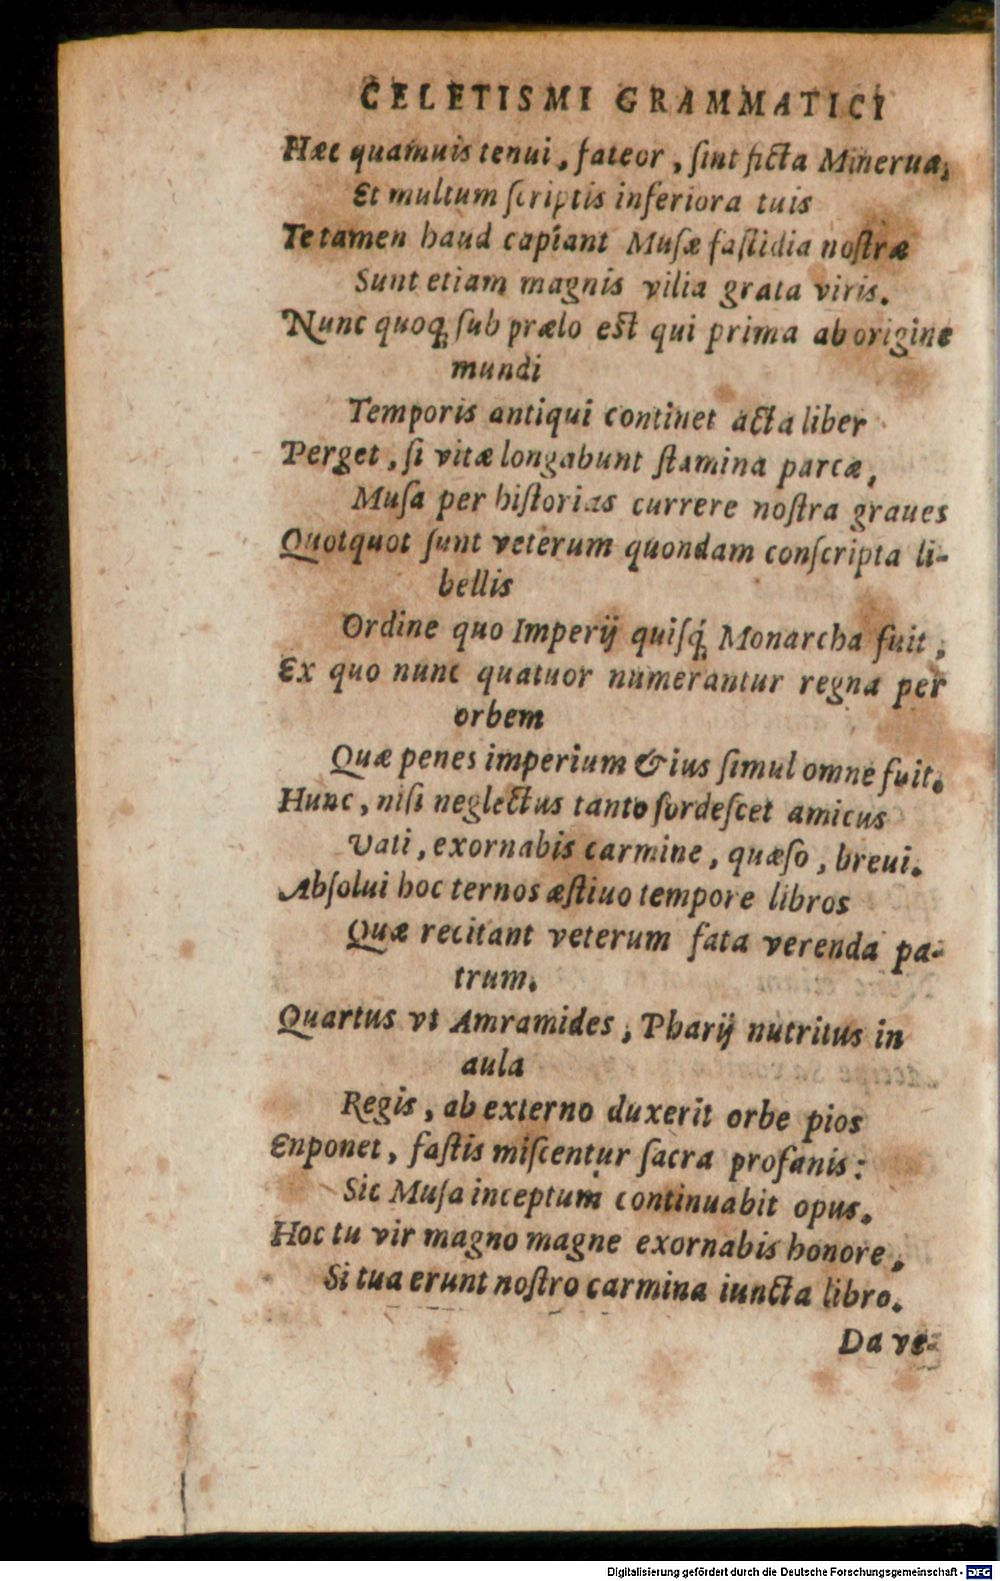 CELETISMI GRAMMATICI
Hæc quamuis tenui, fateor, ſint ficta Minerua,
Et multum ſcriptis inferiora tuis
Te tamen haud capiant Muſæ faſtidia noſtræ
Sunt etiam magnis vilia grata viris.
Nunc quoq; ſub prælo eſt qui prima ab origine
mundi
Temporis antiqui continet acta liber
Perget, ſi vitæ longabunt ſtamina parcæ,
Muſa per hiſtorias currere noſtra graues
Quotquot ſunt veterum quondam conſcripta li-
bellis
Ordine quo Imperij quiſq́; Monarcha fuit,
Ex quo nunc quatuor numerantur regna per
orbem
Quæ penes imperium & ius ſimul omne fuit.
Hunc, niſi neglectus tanto ſordeſcet amicus
Vati, exornabis carmine, quæſo, breui.
Abſolui hoc ternos æſtiuo tempore libros
Quæ recitant veterum fata verenda pa-
trum.
Quartus vt Amramides, Pharij nutritus in
aula
Regis, ab externo duxerit orbe pios
Enponet, faſtis miſcentur ſacra profanis:
Sic Muſa inceptum continuabit opus.
Hoc tu vir magno magne exornabis honore,
Si tua erunt noſtro carmina iuncta libro.
Da ve-
Digitalisierung gefördert durch die Deutsche Forschungsgemeinschaft - DFG